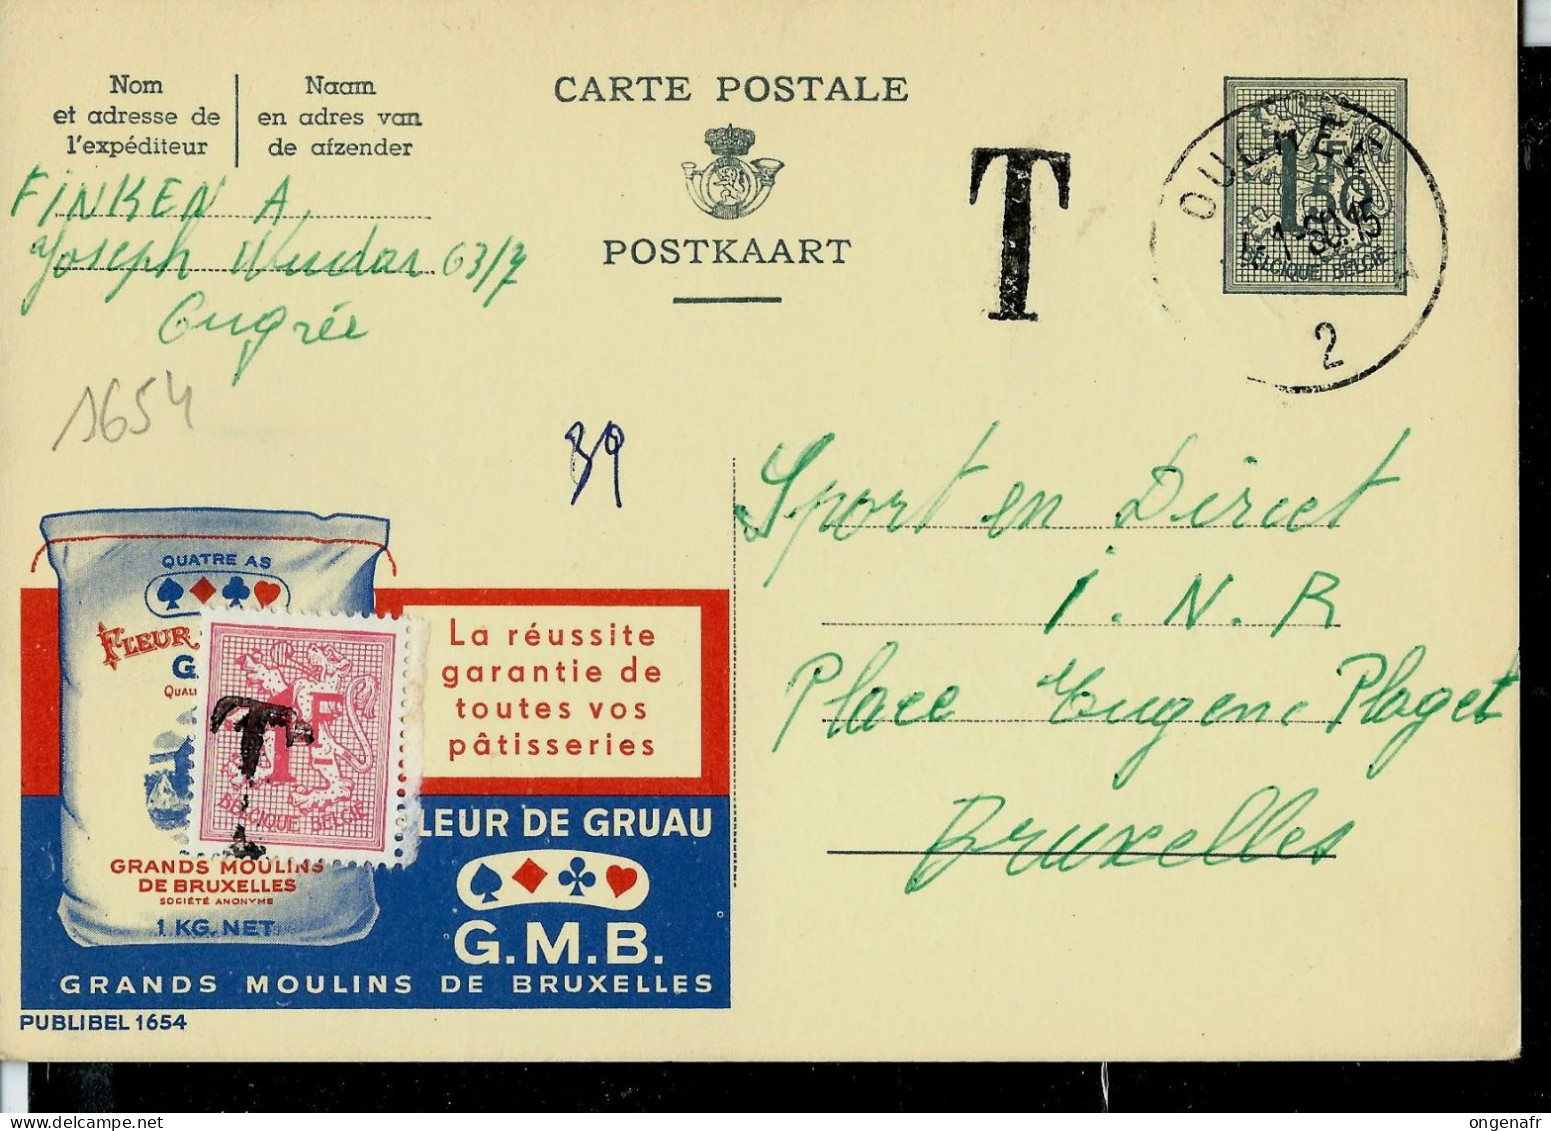 Nom
et adresse de
l'expéditeur
Naam
en adres van
de afzender
CARTE POSTALE
POSTKAART
T
1F
50
BELGIQUE BELGIË
2
FINKEN A.
Joseph 63/7
Ougrée
1654
39
Sport en Direct
I. N. R
Place Eugene Plaget
Bruxelles
QUATRE AS
FLEUR
G
QUALI
1F
BELGIQUE BELGIË
T
GRANDS MOULINS
DE BRUXELLES
SOCIÉTÉ ANONYME
1 KG. NET
La réussite
garantie de
toutes vos
pâtisseries
LEUR DE GRUAU
G.M.B.
GRANDS MOULINS DE BRUXELLES
PUBLIBEL 1654
ongenafr